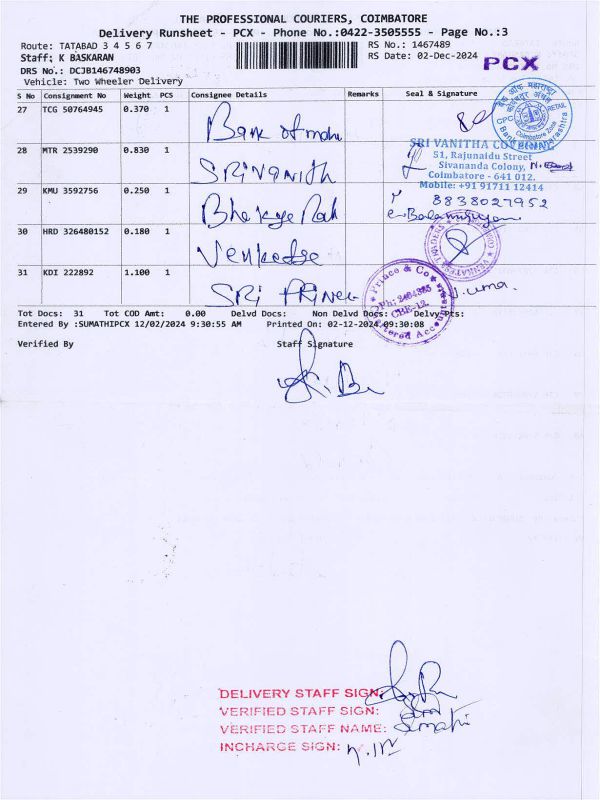 THE PROFESSIONAL COURIERS, COIMBATORE
Delivery Runsheet - PCX - Phone No.:0422-3505555 - Page No.:3
Route: TATABAD 3 4 5 6 7 RS No.: 1467489
Staff: K BASKARAN RS Date: 02-Dec-2024 PCX
DRS No.: DCJB146748903
Vehicle: Two Wheeler Delivery
S No Consignment No Weight PCS Consignee Details Remarks Seal & Signature
27 TCG 50764945 0.370 1 Bank of maha
28 MTR 2539290 0.830 1 SRI VANITH
SRI VANITHA
51, Rajunaidu Street
Sivananda Colony,
Coimbatore - 641 012.
Mobile: +91 91711 12414
29 KMU 3592756 0.250 1
8838027952
30 HRD 326480152 0.180 1
31 KDI 222892 1.100 1 SRI PRINCE
Prince & Co
CBE-12.
uma.
Tot Docs: 31 Tot COD Amt: 0.00 Delvd Docs: Non Delvd Docs: Delvy Pts:
Entered By :SUMATHIPCX 12/02/2024 9:30:55 AM Printed On: 02-12-2024 09:30:08
Verified By Staff Signature
DELIVERY STAFF SIGN:
VERIFIED STAFF SIGN:
VERIFIED STAFF NAME: Sumathi
INCHARGE SIGN: